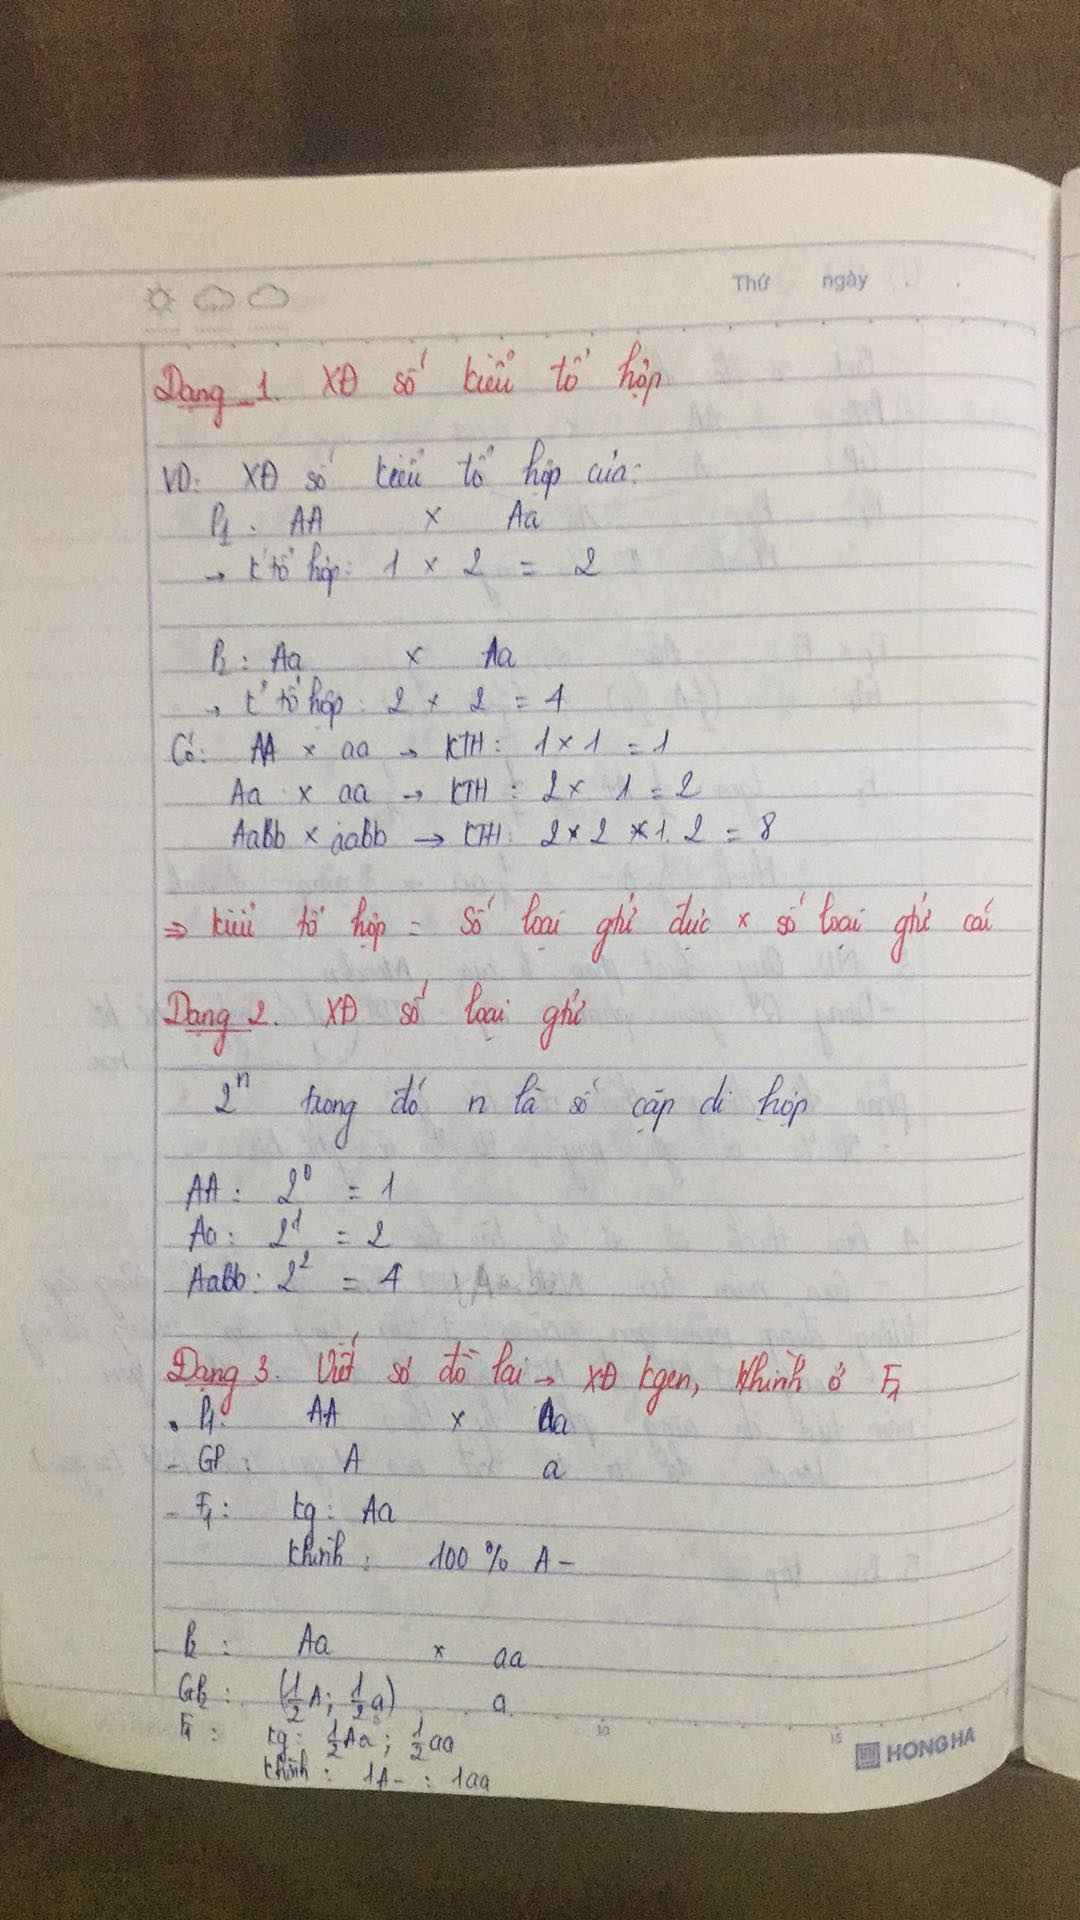 Thứ ngày
Dạng 1. XĐ số kiểu tổ hợp
VD: XĐ số kiểu tổ hợp của:
P1: AA x Aa
→ k' tổ hợp: 1 x 2 = 2
P2: Aa x Aa
→ k' tổ hợp: 2 x 2 = 4
Có: AA x aa → KTH: 1 x 1 = 1
Aa x aa → KTH: 2 x 1 = 2
AaBb x aabb → KTH: 2 x 2 x 1. 2 = 8
⇒ kiểu tổ hợp = Số loại gtử đực x số loại gtử cái
Dạng 2. XĐ số loại gtử
2ⁿ trong đó n là số cặp dị hợp
AA: 2⁰ = 1
Aa: 2¹ = 2
AaBb: 2² = 4
Dạng 3. Viết sơ đồ lai → XĐ kgen, khình ở F1
P1: AA x aa
- GP: A a
- F1: kg: Aa
khình: 100% A-
P2: Aa x aa
GP2: (1/2A; 1/2a) a
F1: kg: 1/2Aa; 1/2aa
khình: 1A- : 1aa
10 15
HONG HA